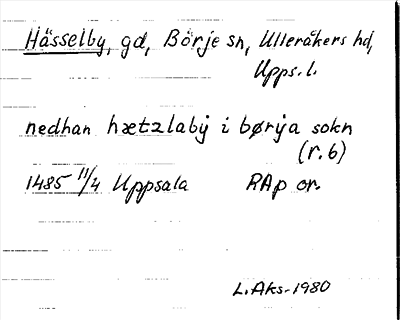 Hässelby, gd, Börje sn, Ulleråkers hd,
Upps. l.
nedhan hætzlabÿ i børija sokn
(r. 6)
1485 11/4 Uppsala RAp or.
L. Aks. 1980